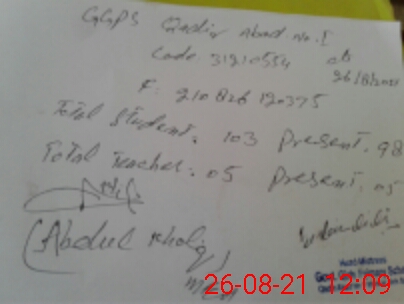 GGPS Qadir Abad No. I
Code 31210554
26/8/2021
F. 210826120375
Total Student. 103 Present. 98
Total Teacher. 05 Present. 05
(Abdul Khaliq)
Head Mistress
26-08-21 12:09